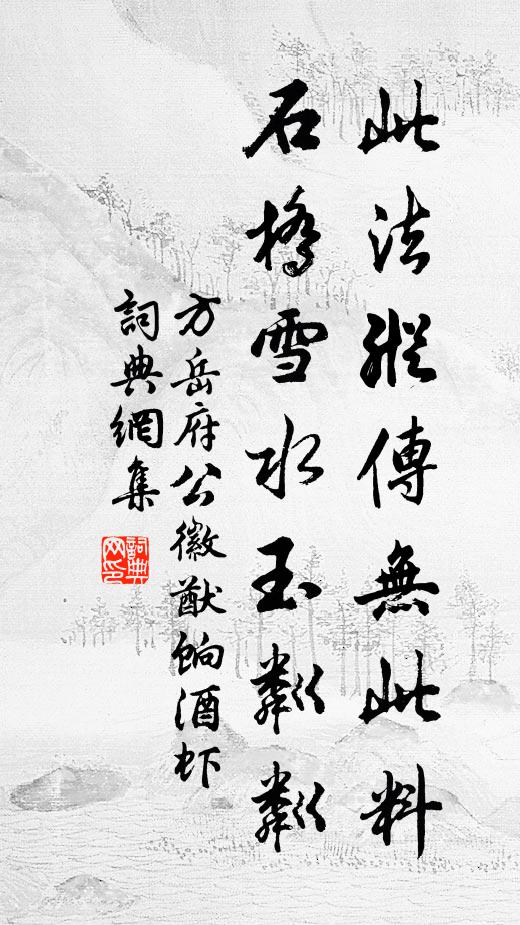 此法縱傳無此料
石橋雪水玉粼粼
方岳府公徽猷餉酒虾
詞典網集
詞典网印